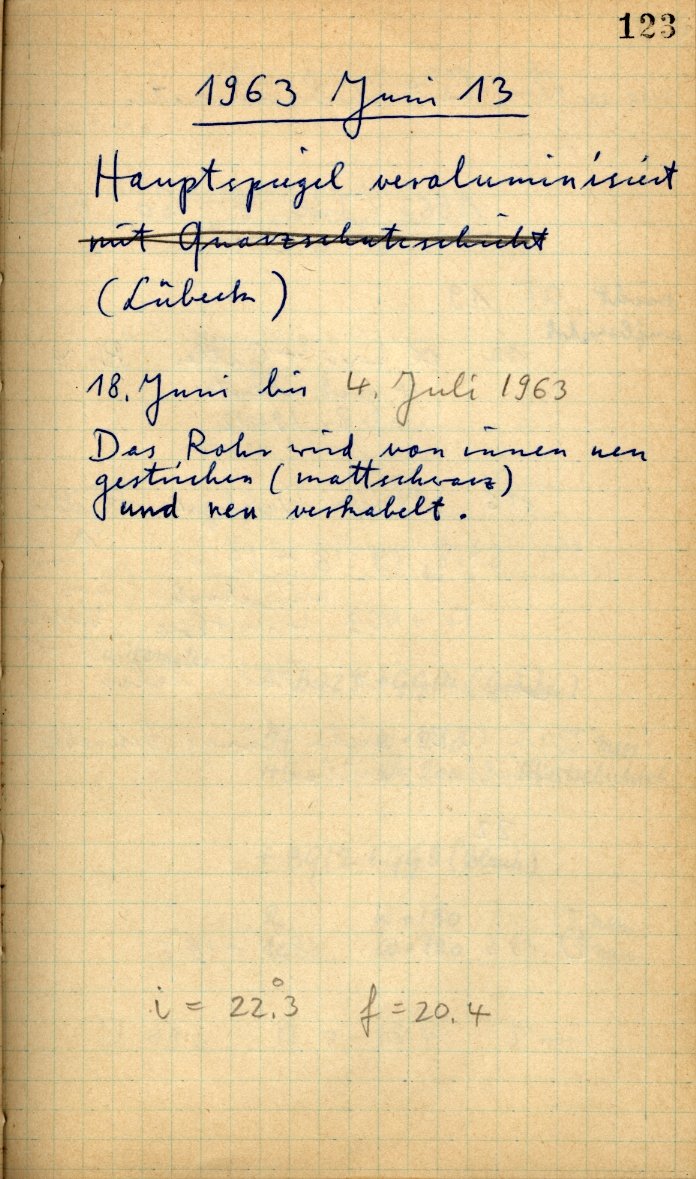 123
1963 Juni 13
Hauptspiegel veraluminisiert
mit Quarzschutzschicht
(Lübeck)
18. Juni bis 4. Juli 1963
Das Rohr wird von innen neu
gestrichen (mattschwarz)
und neu verkabelt.
i = 22°.3 f = 20.4